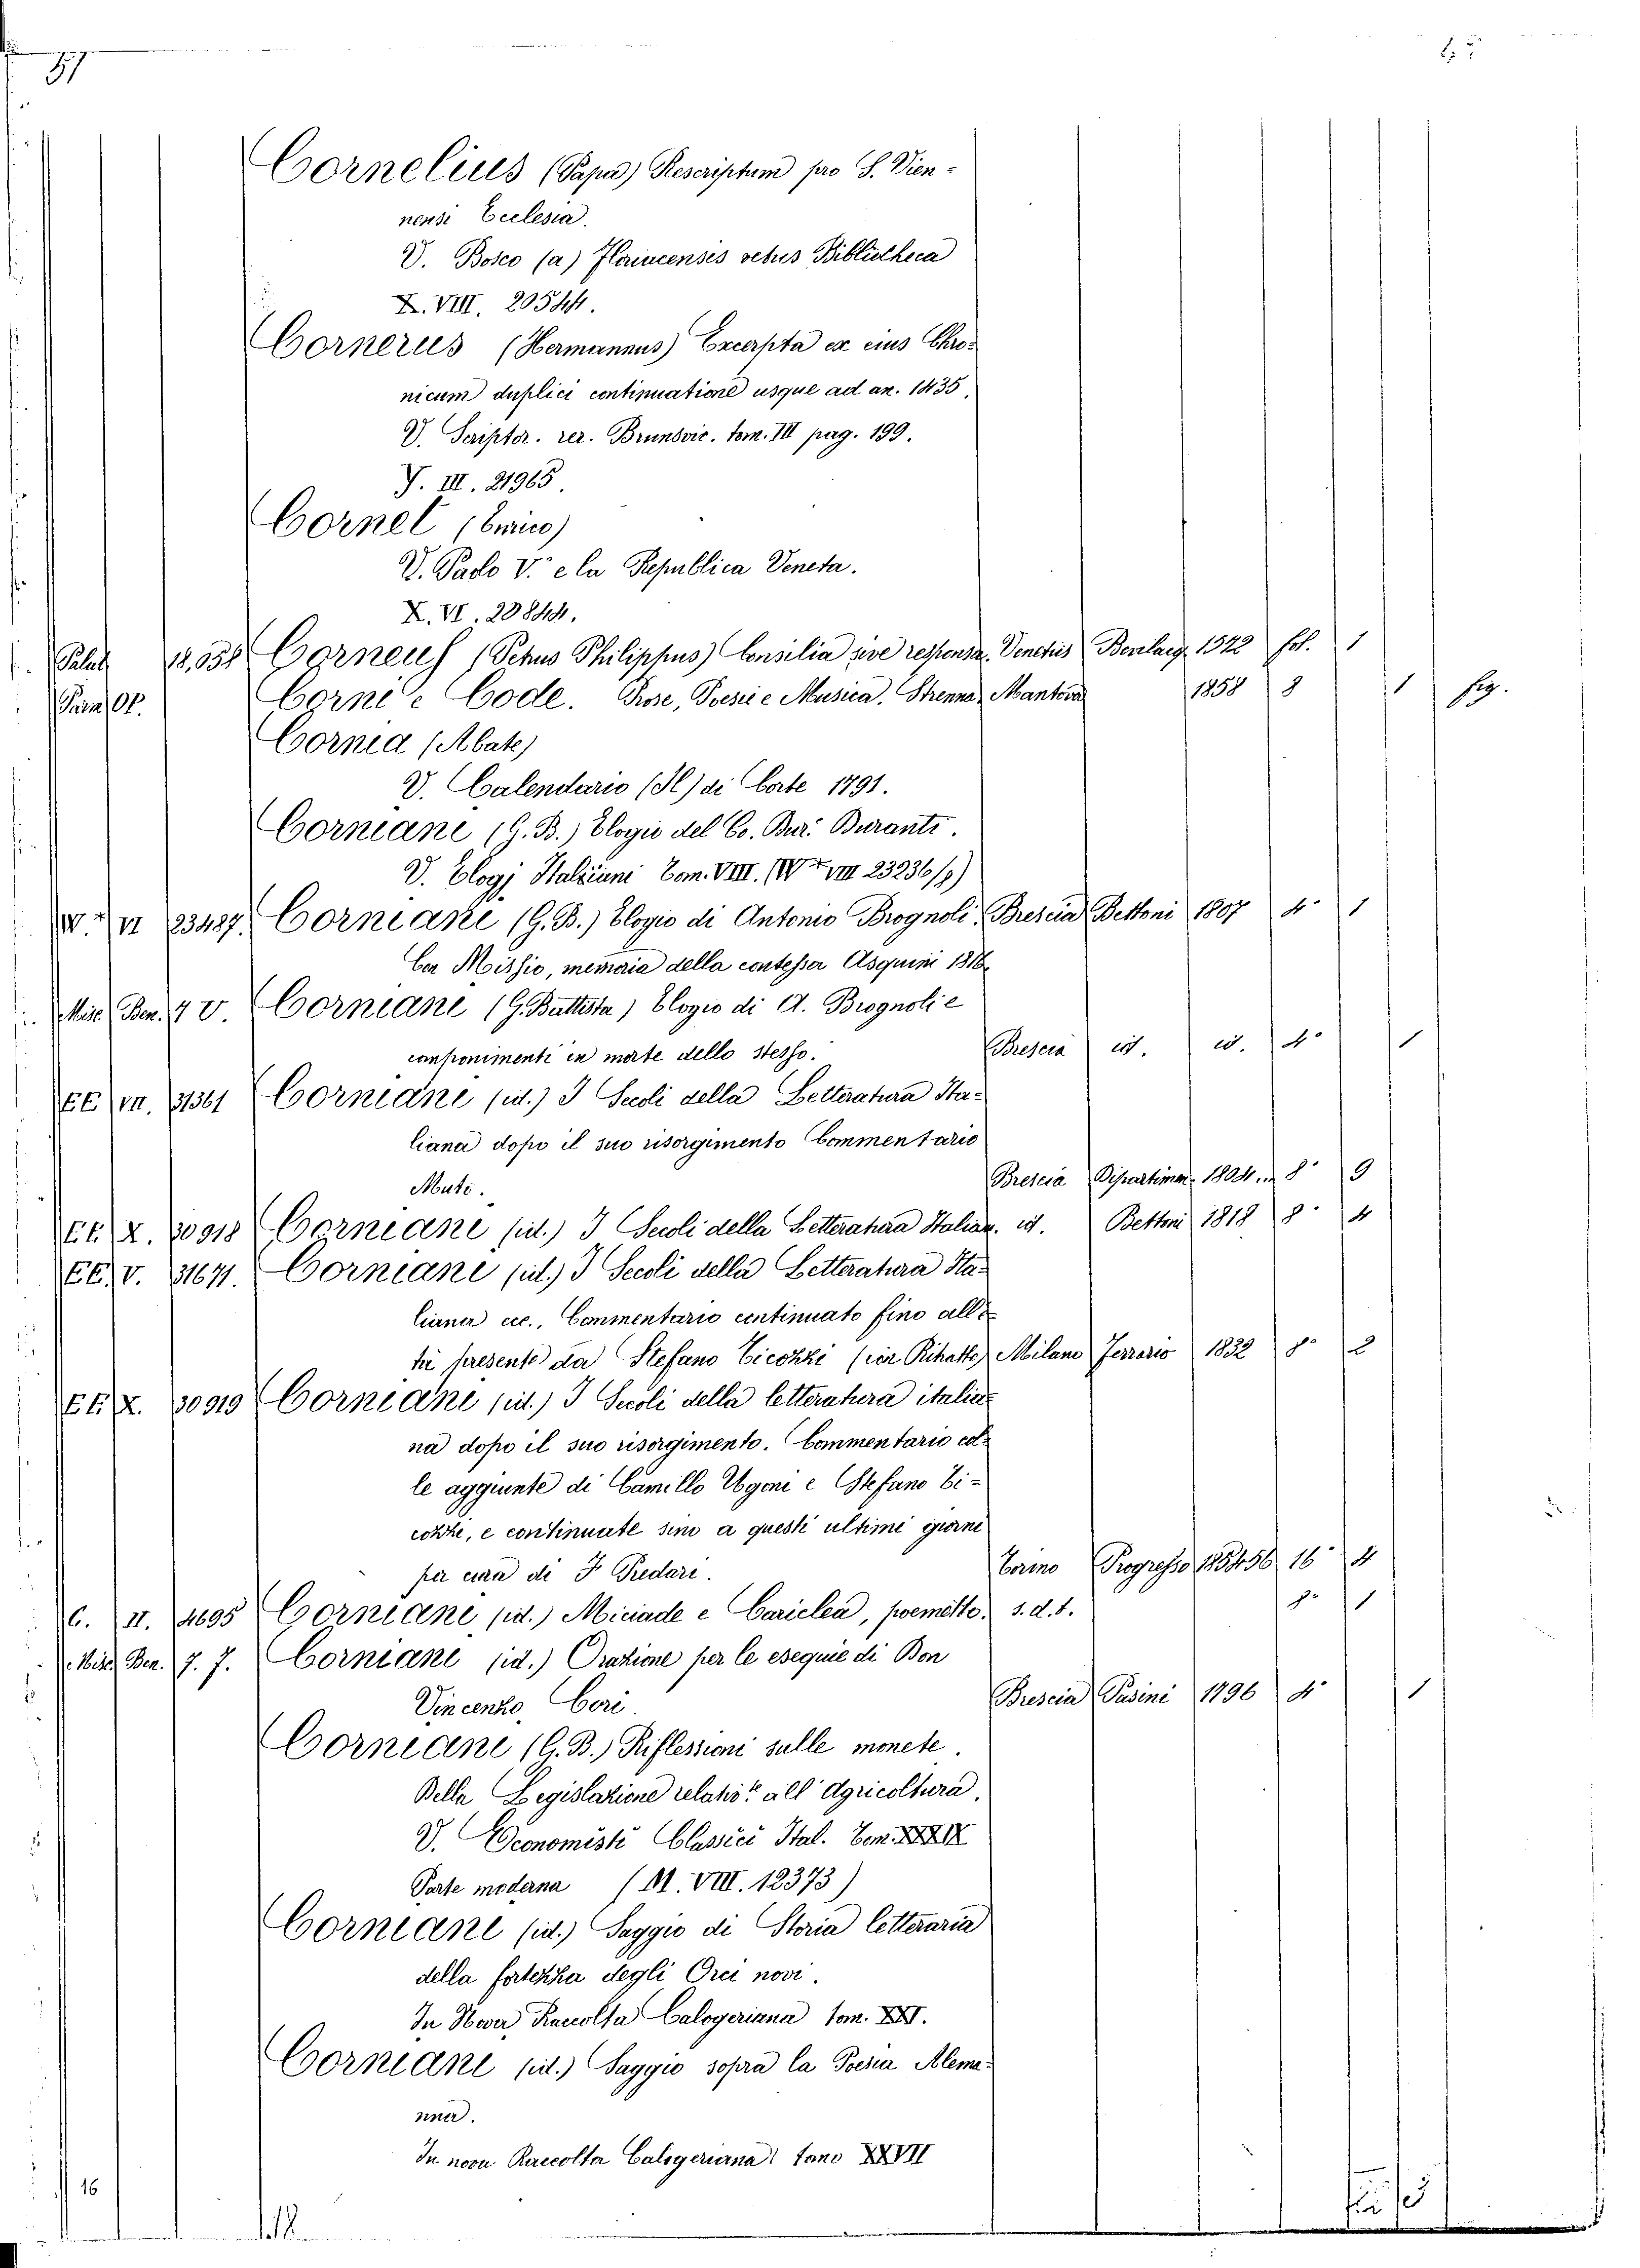 57
Cornelius (Papa) Rescriptum pro S. Vien-
nensi Ecclesia.
V. Bosco (a) Floriacensis vetus Bibliotheca
X. VIII. 20544.
Cornerus (Hermannus) Excerpta ex eius Chro-
nicum duplici continuatione usque ad an. 1435.
V. Scriptor. rer. Brunsvic. tom. III pag. 199.
Y. III. 21965.
Cornet (Enrico)
V. Paolo V.° e la Republica Veneta.
X. VI. 20844.
Palat 18,058 Corneus (Petrus Philippus) Consilia sive responsa. Venetiis Bevilacq 1572 fol. 1
Corni e Code. Prose, Poesie e Musica. Strenna Mantova 1858 8 1 fig.
Cornia (Abate)
V. Calendario (Il) di Corte 1791.
Corniani (G. B.) Elogio del Co. Bur. Buranti.
V. Elogj Italiani Tom. VIII. (W + VIII 23236/8)
W. + VI 23487. Corniani (G. B.) Elogio di Antonio Brognoli Brescia Bettoni 1807 4° 1
Con Missio, memoria della contessa Asquini 1816
Misc. Ben. 4 V. Corniani (G. Battista) Elogio di A. Brognoli e
componimenti in morte dello stesso. Brescia id. id. 4° 1
EE VII. 31361 Corniani (id.) I Secoli della Letteratura Ita-
liana dopo il suo risorgimento Commentario
Muto. Brescia Dipartimen. 1804 8° 9
EE X. 30918 Corniani (id.) I Secoli della Letteratura Italian. id. Bettoni 1818 8° 4
EE. V. 31671. Corniani (id.) I Secoli della Letteratura Ita-
liana ecc., Commentario continuato fino all'e-
tà presente da Stefano Ticozzi (con Ritratto) Milano Ferrario 1832 8° 2
EE X. 30919 Corniani (id.) I Secoli della letteratura italia-
na dopo il suo risorgimento. Commentario col-
le aggiunte di Camillo Ugoni e Stefano Ti-
cozzi, e continuate sino a questi ultimi giorni
per cura di F. Predari. Torino Progresso 185456 16° 4
C. II. 4695 Corniani (id.) Miciade e Cariclea, poemetto. s. d. t. 8° 1
Misc. Ben. 7. 7. Corniani (id.) Orazione per le esequie di Bon
Vincenzo Cori. Brescia Pasini 1796 4° 1
Corniani (G. B.) Riflessioni sulle monete.
Della Legislazione relativ.e all'agricoltura.
V. Economisti Classici Ital. Tom. XXXIX
Parte moderna (M. VIII. 12373)
Corniani (id.) Saggio di Storia letteraria
della fortezza degli Orci novi.
In Nova Raccolta Calogeriana tom. XXI.
Corniani (id.) Saggio sopra la Poesia Alema-
nna.
In nova Raccolta Calogeriana tomo XXVII
16